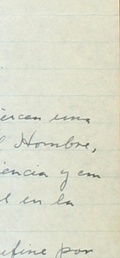 ercen una
l Hombre,
iencia y em
l en la
efine por